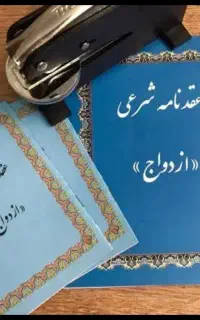 عقدنامه شرعی
«ازدواج»
عقد
«ازدواج